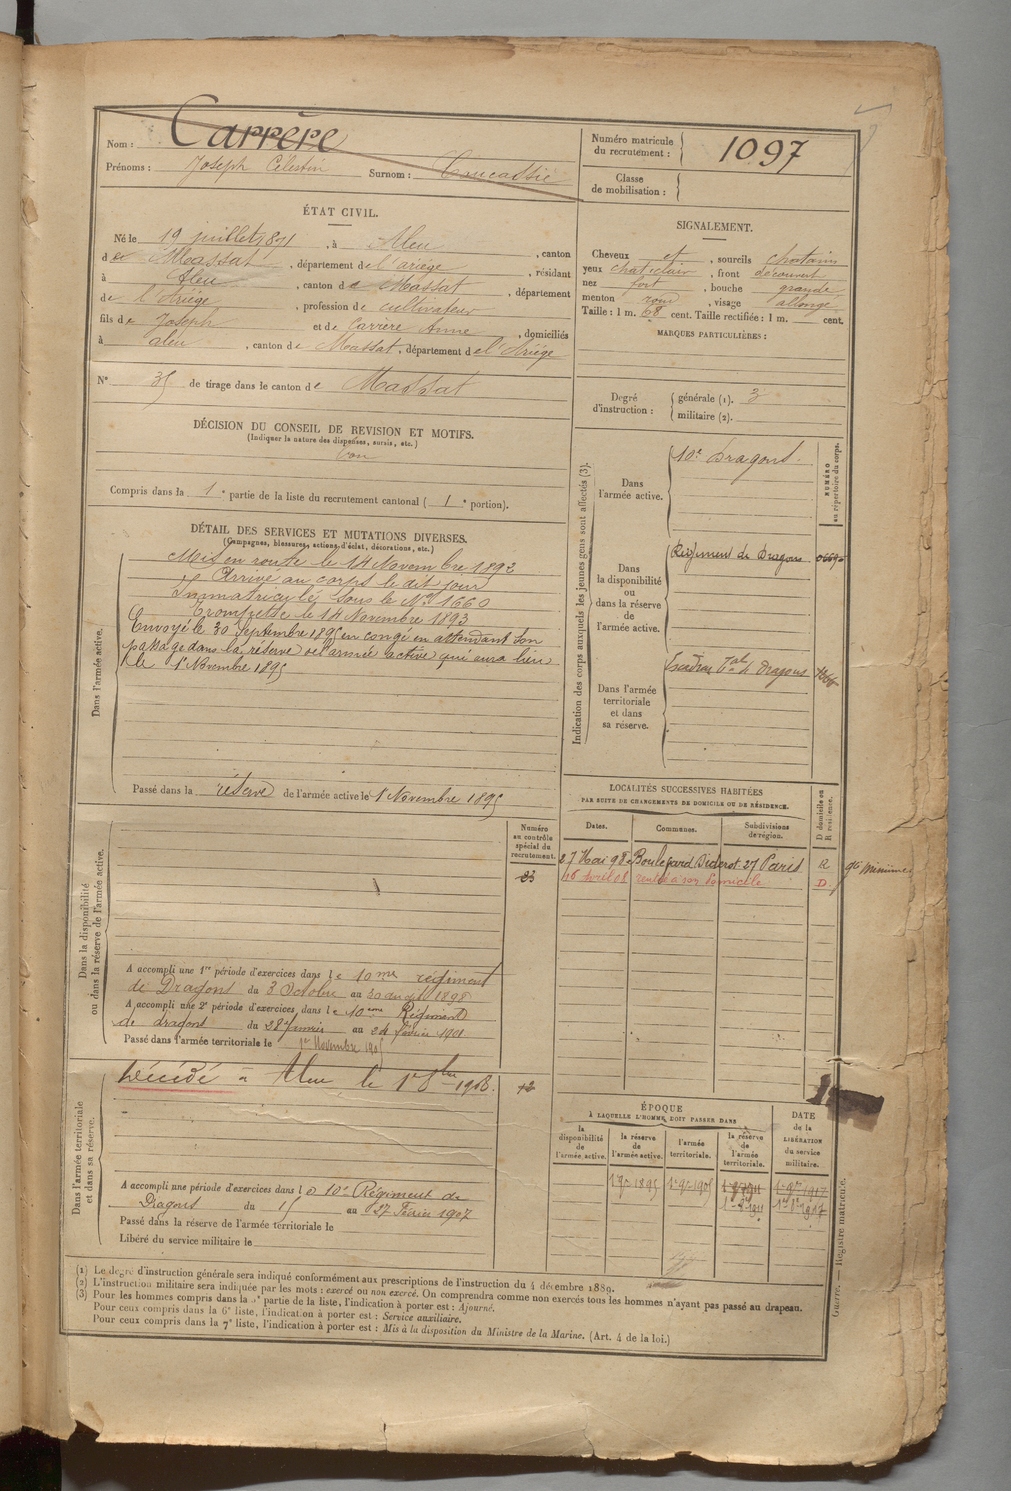 Nom : Carrère
Prénoms : Joseph Célestin Surnom :
Numéro matricule du recrutement : 1097
Classe de mobilisation :
ÉTAT CIVIL.
Né le 19 juillet 1871, à Aleu, canton
de Massat, département de l'ariège, résidant
à Aleu, canton de Massat, département
de l'Ariège, profession de cultivateur
fils de Joseph et de Carrère Anne, domiciliés
à aleu, canton de Massat, département de l'Ariège
N° 35 de tirage dans le canton de Massat
SIGNALEMENT.
Cheveux et, sourcils chatains
yeux chat clair, front découvert
nez fort, bouche grande
menton rond, visage allongé
Taille : 1 m. 68 cent. Taille rectifiée : 1 m. cent.
MARQUES PARTICULIÈRES :
Degré d'instruction : générale (1). 3
militaire (2).
DÉCISION DU CONSEIL DE REVISION ET MOTIFS.
(Indiquer la nature des dispenses, sursis, etc.)
bon
Compris dans la 1e partie de la liste du recrutement cantonal ( 1e portion).
DÉTAIL DES SERVICES ET MUTATIONS DIVERSES.
(Campagnes, blessures, actions d'éclat, décorations, etc.)
Dans l'armée active.
Mis en route le 14 Novembre 1892
Arrivé au corps le dit jour
Immatriculé sous le N° 1660
Trompette le 14 Novembre 1893
Envoyé le 30 Septembre 1895 en congé en attendant son
passage dans la réserve de l'armée active qui aura lieu
le 1er Novembre 1895
Passé dans la réserve de l'armée active le 1er Novembre 1895
Indication des corps auxquels les jeunes gens sont affectés (3).
NUMÉRO au répertoire du corps.
Dans l'armée active.
10e Dragons.
Dans la disponibilité ou dans la réserve de l'armée active.
Régiment de Dragons
Dans l'armée territoriale et dans sa réserve.
Escadron Tal de Dragons
LOCALITÉS SUCCESSIVES HABITÉES
PAR SUITE DE CHANGEMENTS DE DOMICILE OU DE RÉSIDENCE.
D domicile ou R résidence.
Dates. Communes. Subdivisions de région.
27 Mai 98 Boulevard Diderot 27 Paris R
16 avril 01 rentré à son domicile D.
Dans la disponibilité ou dans la réserve de l'armée active.
Numéro au contrôle spécial du recrutement.
23
A accompli une 1re période d'exercices dans le 10me régiment
de Dragons du 3 Octobre au 30 du dit 1898
A accompli une 2e période d'exercices dans le 10eme Régiment
de dragons du 28 janvier au 24 février 1901
Passé dans l'armée territoriale le 1er Novembre 1905
Dans l'armée territoriale et dans sa réserve.
Décédé à Aleu le 1er 8bre 1908.
A accompli une période d'exercices dans le 10e Régiment de
Dragons du 15 au 27 Février 1907
Passé dans la réserve de l'armée territoriale le
Libéré du service militaire le
ÉPOQUE
À LAQUELLE L'HOMME DOIT PASSER DANS
la disponibilité de l'armée active.
la réserve de l'armée active.
l'armée territoriale.
la réserve de l'armée territoriale.
DATE de la LIBÉRATION du service militaire.
1er 9bre 1895 1er 9bre 1905 1er 9bre 1911 1er 9bre 1917
1er 8bre 1911 1er 8bre 1917
Guerre. — Registre matricule.
(1) Le degré d'instruction générale sera indiqué conformément aux prescriptions de l'instruction du 4 décembre 1889.
(2) L'instruction militaire sera indiquée par les mots : exercé ou non exercé. On comprendra comme non exercés tous les hommes n'ayant pas passé au drapeau.
(3) Pour les hommes compris dans la 5e partie de la liste, l'indication à porter est : Ajourné.
Pour ceux compris dans la 6e liste, l'indication à porter est : Service auxiliaire.
Pour ceux compris dans la 7e liste, l'indication à porter est : Mis à la disposition du Ministre de la Marine. (Art. 4 de la loi.)